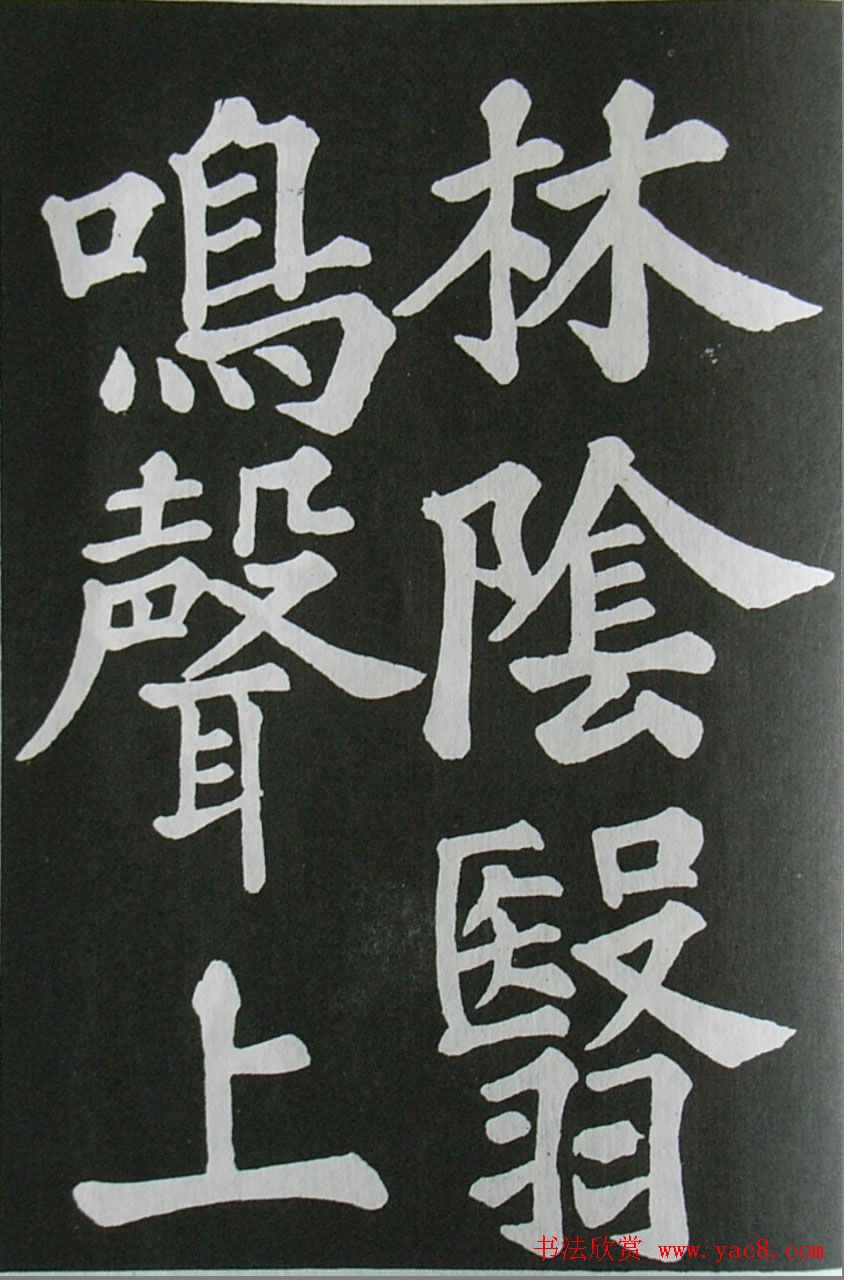 林陰翳
鳴聲上
书法欣赏 www.yac8.com